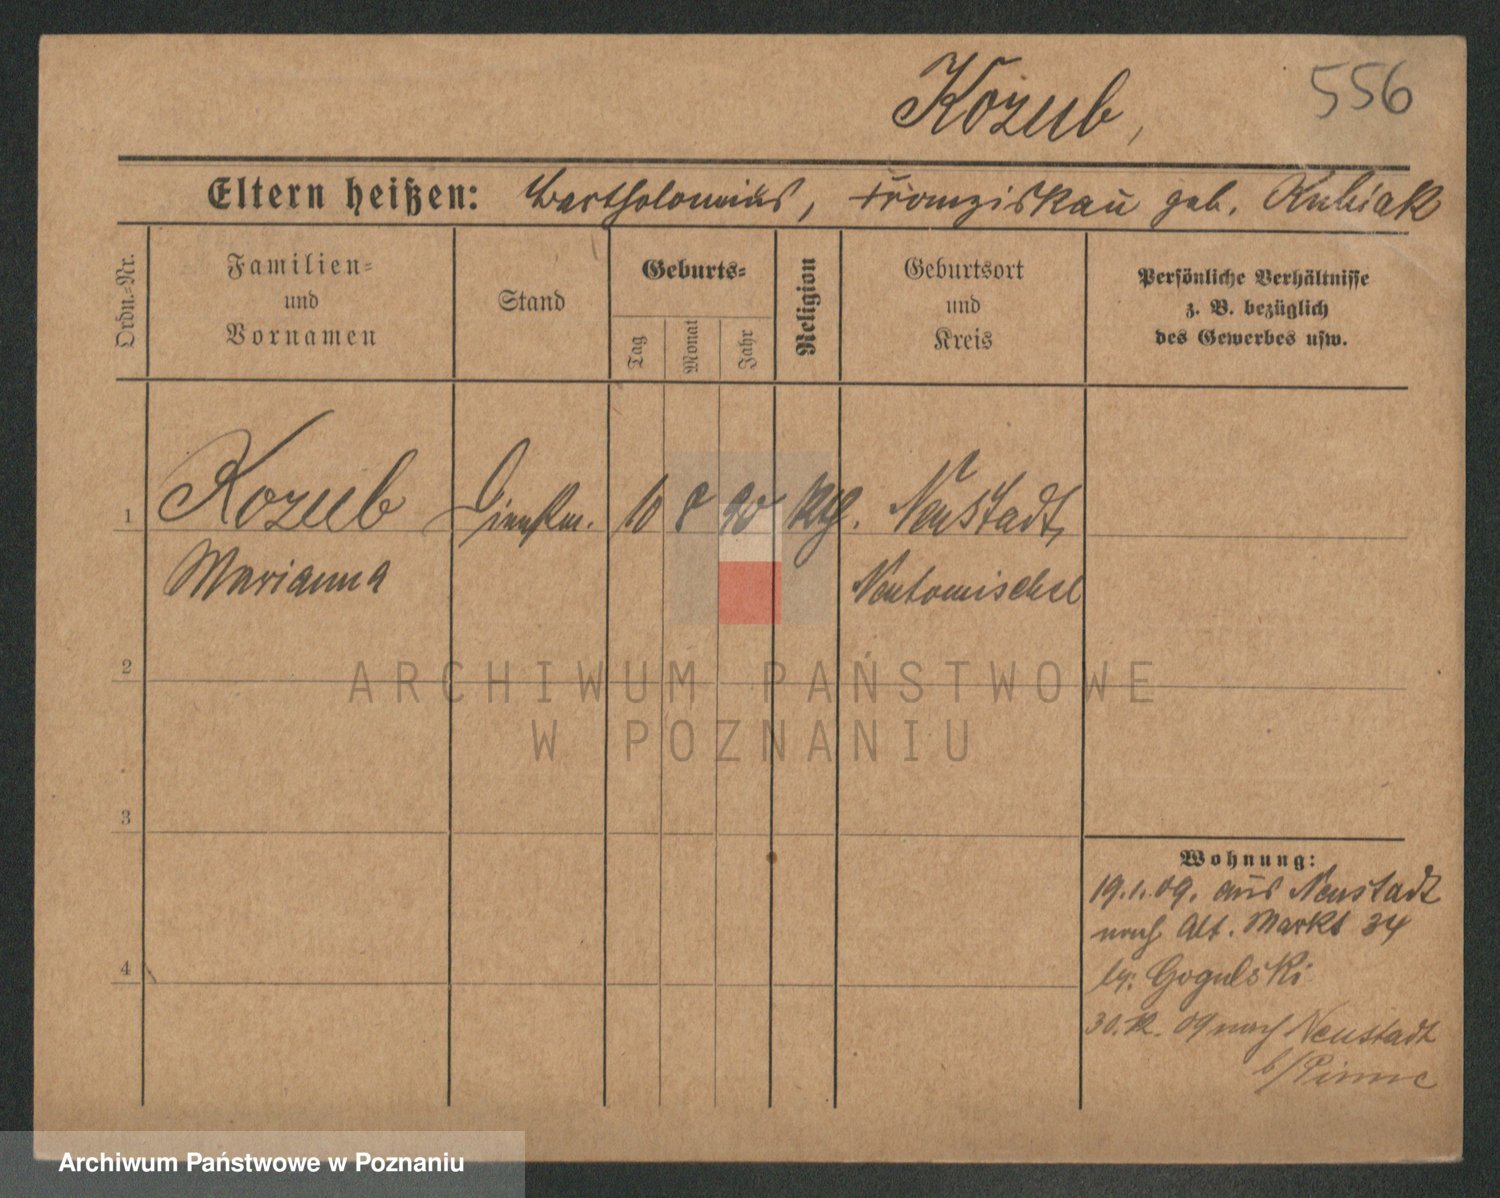 Kozub,
556
Eltern heißen: Bartholomäus, Franziska geb. Kubiak
Ordn.-Nr.
Familien-
und
Vornamen
Stand
Geburts-
Tag
Monat
Jahr
Religion
Geburtsort
und
Kreis
Persönliche Verhältnisse
z. B. bezüglich
des Gewerbes usw.
1
Kozub
Marianna
Dienstm.
10
8
90
kth.
Neustadt,
Neutomischel
2
3
4
Wohnung:
19.1.09. aus Neustadt
nach Alt. Markt 34
by. Gogulski
30.12.09 nach Neustadt
b/Pinne
ARCHIWUM PAŃSTWOWE
W POZNANIU
Archiwum Państwowe w Poznaniu